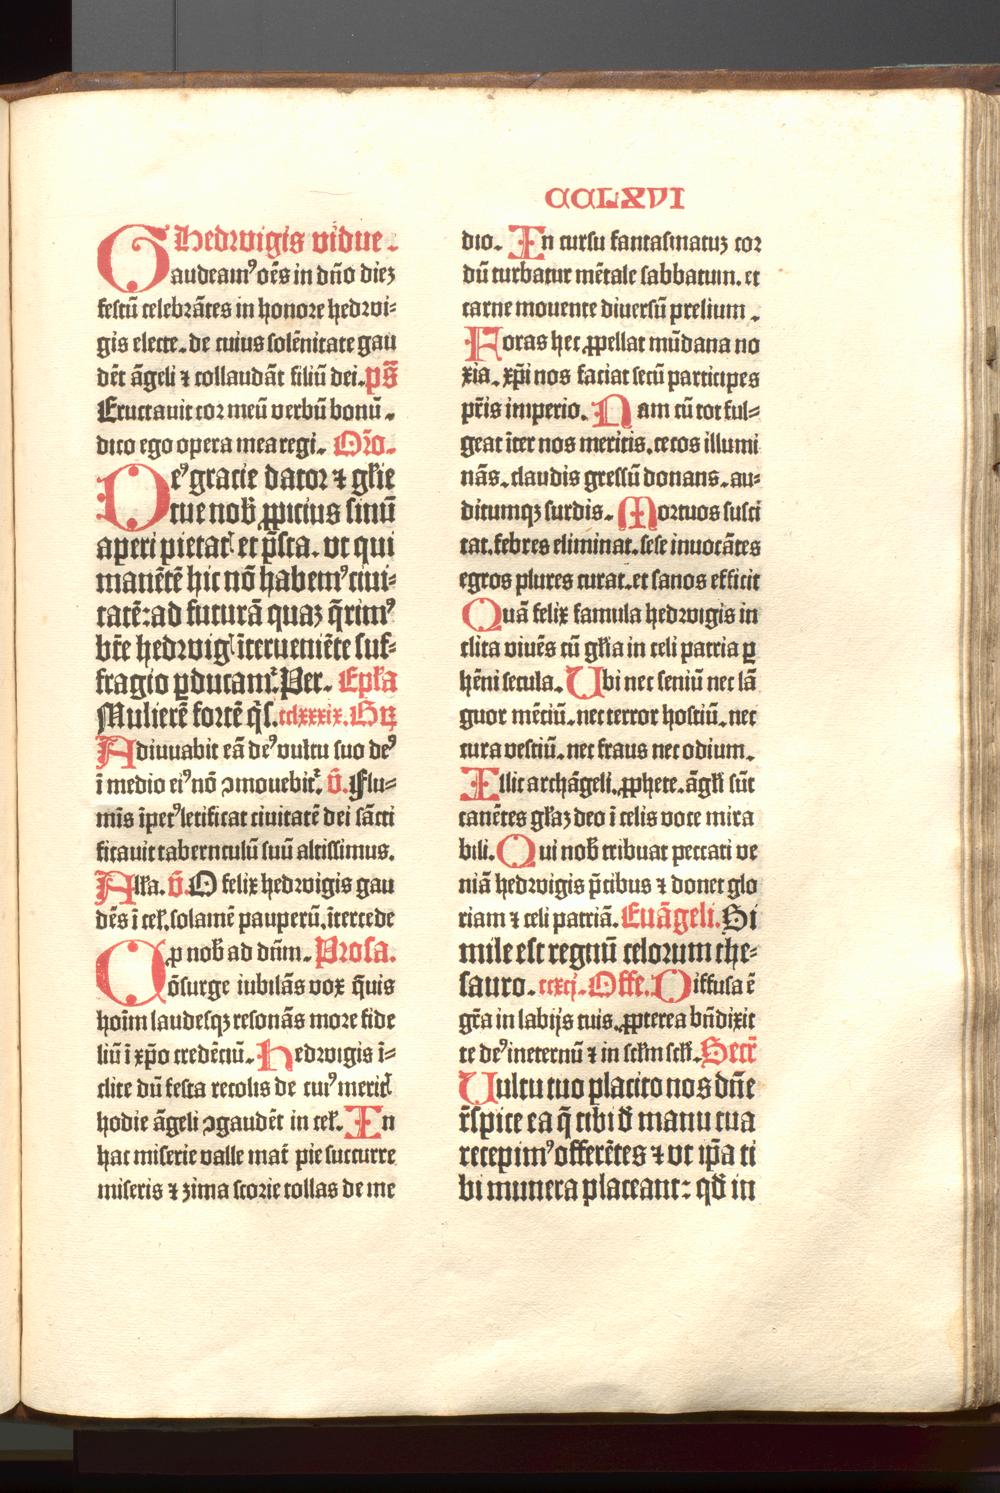 CCLXVI
Hedwigis vidue.
Gaudeamꝰ oēs in dn̄o diēz
festū celebrātes in honore hedwi⸗
gis electe. de cuius solēnitate gau
dēt āgeli ⁊ collaudāt filiū dei. ps̄
Eructauit cor meū verbū bonū.
dico ego opera mea regi. Or̄o.
Deꝰ gracie dator ⁊ glīe
tue nob̄ ꝓpicius sinū
aperi pietatꝭ et p̄sta. vt qui
manētē hic nō habemꝰ ciui⸗
tatē: ad futurā quaꝫ q̄rimꝰ
btē hedwigꝭ īterueniēte suf⸗
fragio ꝑducamᷣ. Per. Ep̄la
Mulierē fortē q̄s. cclxxxix. Gꝝ
Adiuuabit eā deꝰ vultu suo deꝰ
ī medio eiꝰ nō ꝯmouebitᷣ. v̄. Flu⸗
mīs īpetꝰ letificat ciuitatē dei sācti
ficauit tabernculū suū altissimus.
Allā. v̄. O felix hedwigis gau
dēs ī cel̄. solamē pauperū. ītercede
ꝓ nob̄ ad dn̄m. Prosa.
Cōsurge iubilās vox q̄uis
hoīm laudesqꝫ resonās more fide
liū ī xp̄o credēciū. Hedwigis ī⸗
clite dū festa recolis de cuiꝰ meritꝭ
hodie āgeli ꝯgaudēt in cel̄. In
hac miserie valle mat̄ pie succurre
miseris ⁊ zima scorie tollas de me
dio. In cursu fantasmatuꝫ cor
dū turbatur mētale sabbatum. et
carne mouente diuersū prelium.
Foras hec ꝓpellat mūdana no
xia. xp̄i nos faciat secū participes
pr̄is imperio. Nam cū tot ful⸗
geat īter nos meritis. cecos illumi
nās. claudis gressū donans. au⸗
ditumqꝫ surdis. Mortuos susci
tat. febres eliminat. sese inuocātes
egros plures curat. et sanos efficit
Quā felix famula hedwigis in
clita viuēs cū glīa in celi patria ꝑ
hēni secula. Ubi nec seniū nec lā
guor mēciū. nec terror hostiū. nec
cura vestiū. nec fraus nec odium.
Illic archāgeli. ꝓphete. āgli sūt
canētes glāꝫ deo ī celis voce mira
bili. Qui nob̄ tribuat peccati ve
niā hedwigis p̄cibus ⁊ donet glo
riam ⁊ celi patriā. Euāgeli. Si
mile est regnū celorum the⸗
sauro. ccxcj. Offe. Diffusa ē
gr̄a in labijs tuis. ꝓpterea bn̄dixit
te deꝰ in eternū ⁊ in sc̄lm sc̄li. Secr̄
Vultu tuo placito nos dn̄e
r̄spice ea q̄ tibi d̄ manu tua
recepimꝰ offerētes ⁊ vt ip̄a ti
bi munera placeant: qd̄ in